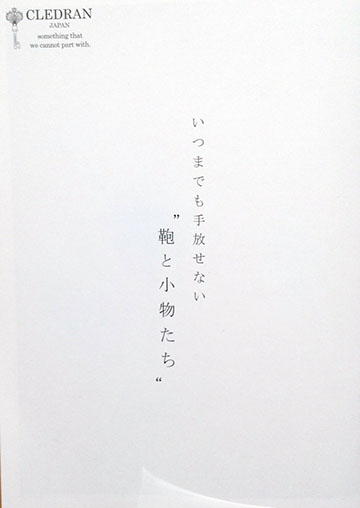 CLEDRAN
JAPAN
something that
we cannot part with.
いつまでも手放せない
”鞄と小物たち“